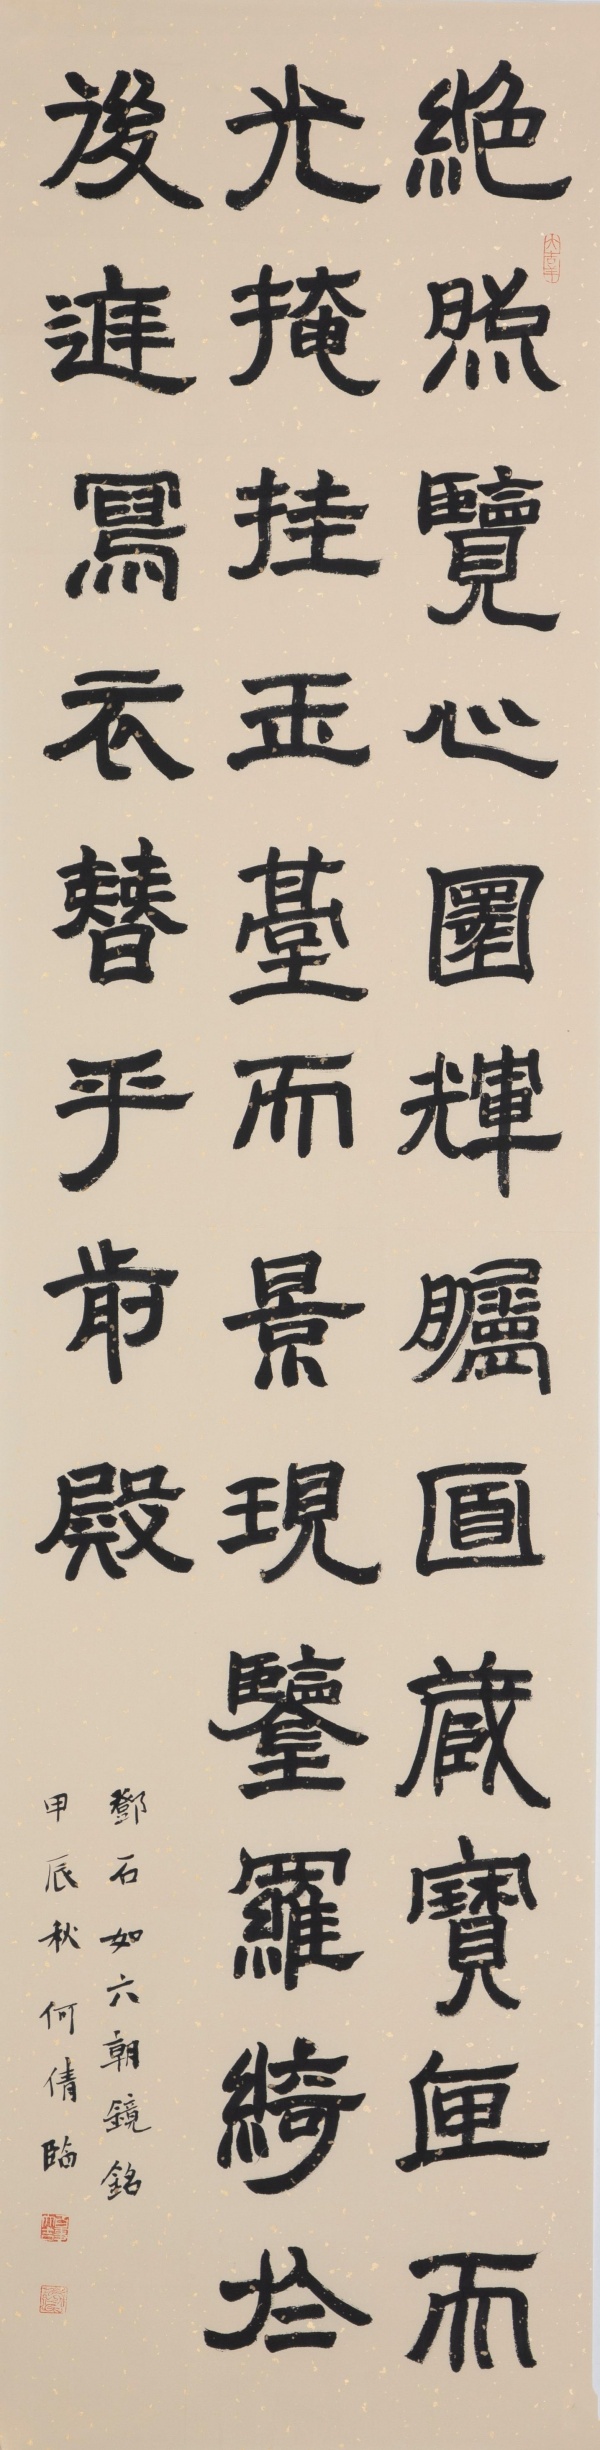 絶照覽心圜輝矚面藏寶匣而
光掩挂玉臺而景現鑒羅綺於
後庭寫衣簪乎前殿
鄧石如六朝鏡銘
甲辰秋何倩臨
大吉羊